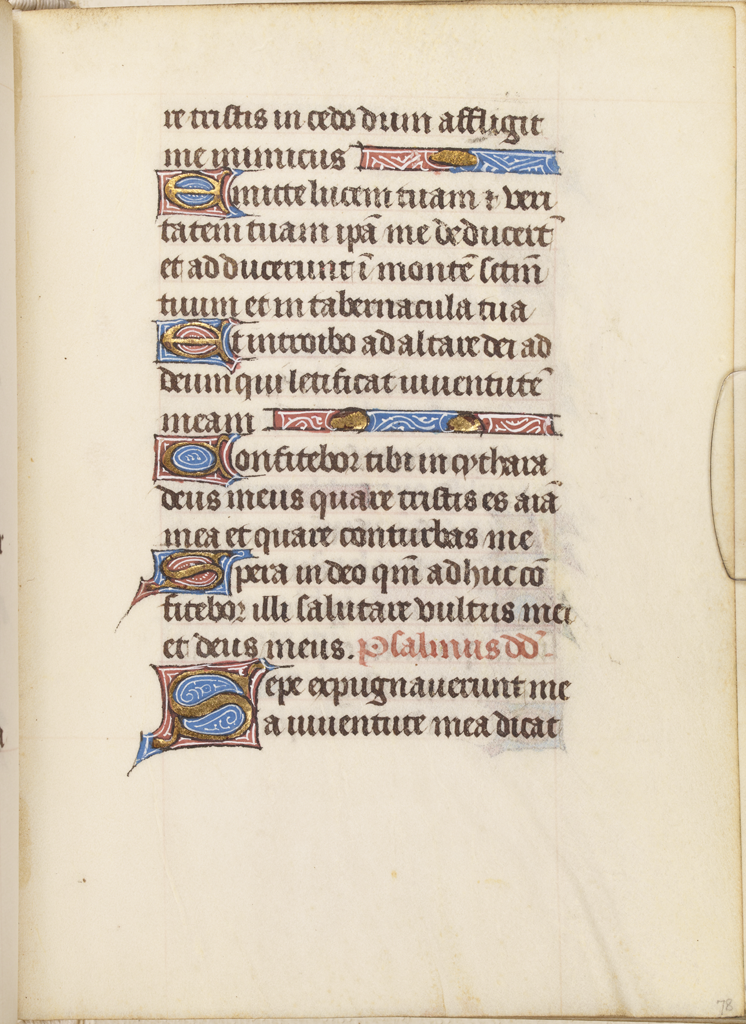 re tristis in cedo dum affligit
me inimicus
Emitte lucem tuam ⁊ veri
tatem tuam ipā me deducert̄
et adducerunt ī montē sctm̄
tuum et in tabernacula tua
Et introibo ad altare dei ad
deum qui letificat iuuentutē
meam
Confitebor tibi in cythara
deus meus quare tristis es aīā
mea et quare conturbas me
Spera in deo qm̄ adhuc cō
fitebor illi salutare vultus mei
et deus meus. Psalmus dd̄
Sepe expugnauerunt me
a iuuentute mea dicat
78